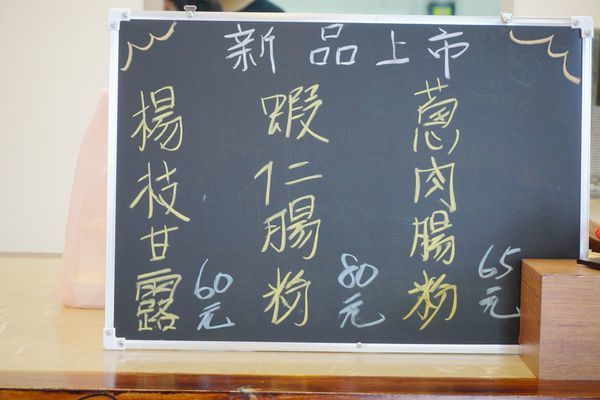 新品上市
蔥肉腸粉
65元
蝦仁腸粉
80元
楊枝甘露
60元